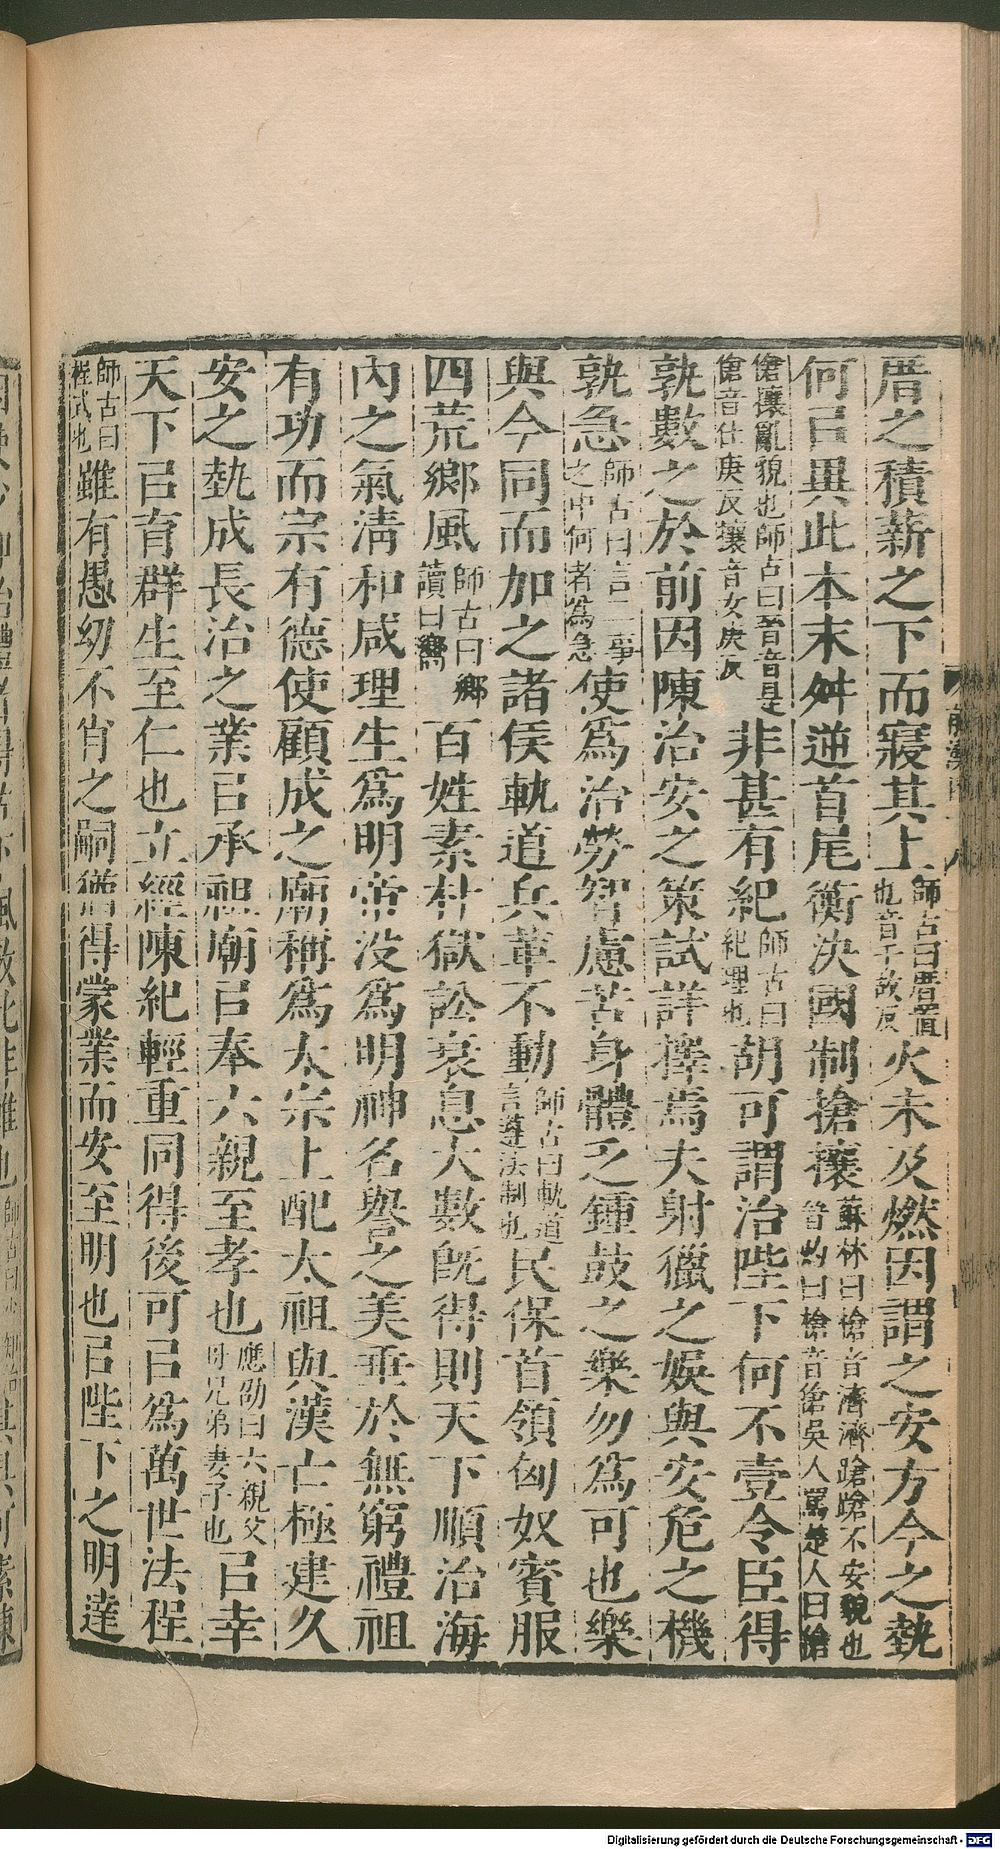 厝之積薪之下而寢其上師古曰厝置也音千故反火未及燃因謂之安方今之埶
何㠯異此本末舛逆首尾衡決國制搶攘蘇林曰搶音濟濟蹌蹌不安貌也晉灼曰搶音傖吳人罵楚人曰傖
傖攘亂貌也師古曰晉音是傖音仕庚反攘音女庚反非甚有紀師古曰紀理也胡可謂治陛下何不壹令臣得
孰數之於前因陳治安之策試詳擇焉夫射獵之娛與安危之機
孰急師古曰言二事之中何者為急使爲治勞智慮苦身體乏鍾鼓之樂勿爲可也樂
與今同而加之諸侯軌道兵革不動師古曰軌道言遵法制也民保首領匈奴賓服
四荒鄉風師古曰鄉讀曰嚮百姓素朴獄訟衰息大數旣得則天下順治海
內之氣清和咸理生爲明帝沒爲明神名譽之美垂於無窮禮祖
有功而宗有德使顧成之廟稱爲太宗上配太祖與漢亡極建久
安之埶成長治之業㠯承祖廟㠯奉六親至孝也應劭曰六親父母兄弟妻子也㠯幸
天下㠯育群生至仁也立經陳紀輕重同得後可㠯爲萬世法程
師古曰程式也雖有愚幼不肖之嗣猶得蒙業而安至明也㠯陛下之明達
Digitalisierung gefördert durch die Deutsche Forschungsgemeinschaft - DFG